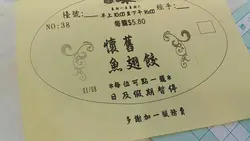 檯號:___ 早上10:00至下午16:00 經手:___
每籠$5.80
NO:38
懷舊
魚翅餃
*每位可點一籠*
日及假期暫停
11/13
多謝加一服務費